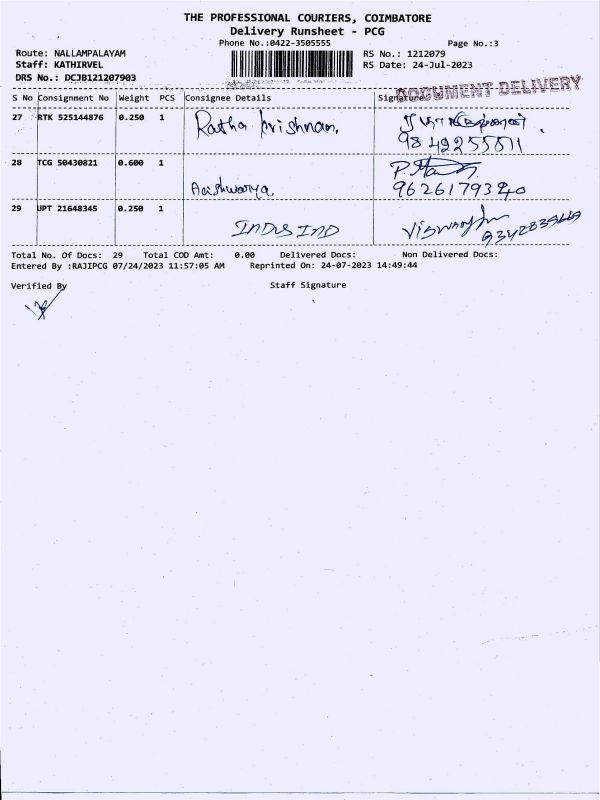 THE PROFESSIONAL COURIERS, COIMBATORE
Delivery Runsheet - PCG
Phone No.:0422-3505555 Page No.:3
Route: NALLAMPALAYAM RS No.: 1212079
Staff: KATHIRVEL RS Date: 24-Jul-2023
DRS No.: DCJB121207903
DOCUMENT DELIVERY
S No Consignment No Weight PCS Consignee Details Signature
27 RTK 525144876 0.250 1 Ratha krishnan,
28 TCG 50430821 0.600 1 Aashwarya
9626179340
29 JPT 21648345 0.250 1 INDUS IND
Total No. Of Docs: 29 Total COD Amt: 0.00 Delivered Docs: Non Delivered Docs:
Entered By :RAJIPCG 07/24/2023 11:57:05 AM Reprinted On: 24-07-2023 14:49:44
Verified By Staff Signature